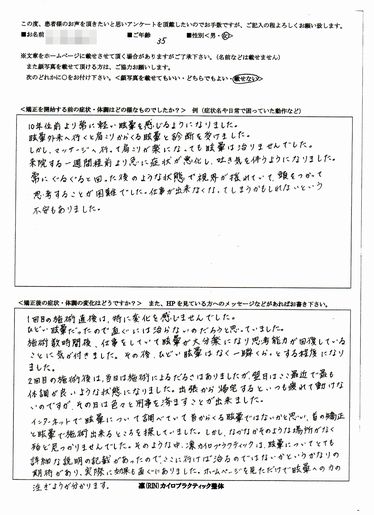 この度、患者様のお声を頂きたいと思いアンケートを頂戴したいのでお手数ですが、ご記入の程よろしくお願い致します。
■お名前 ■ご年齢 35 ■性別<男・女>
※文章をホームページに載せさせて頂く場合がありますがご了承下さい。(名前などは載せません)
また顔写真を載せて頂ける方は、ご協力お願いします。
次のどれかに○をお付け下さい。<顔写真を載せてもいい・どちらでもよい・載せない>
<矯正を開始する前の症状・体調はどの様なものでしたか?> 例(症状名や日常で困っていた動作など)
10年位前より常に軽い眩暈を感じるようになりました。
眩暈外来へ行くと肩こりからくる眩暈と診断を受けました。
しかし、マッサージへ行って肩こりが楽になっても眩暈は治りませんでした。
来院する一週間程前より急に症状が悪化し、吐き気を伴うようになりました。
常にぐるぐると回った後のような状態で視界が揺れていて、頭をつかって
思考することが困難でした。仕事が出来なくなってしまうかもしれないという
不安もありました。
<矯正後の症状・体調の変化はどうですか?> また、HPを見ている方へのメッセージなどがあればお書き下さい。
1回目の施術直後は、特に変化を感じませんでした。
ひどい眩暈だったので直ぐには治らないのだろうと思っていました。
施術数時間後、仕事をしていて眩暈が大分楽になり思考能力が回復している
ことに気が付きました。その後、ひどい眩暈はなく一瞬くらっとする程度になり
ました。
2回目の施術後は、当日は施術によるだるさはありましたが、翌日はここ最近で最も
体調が良いような状態になりました。出張から帰宅するといつも疲れて動けな
いのですが、その日は色々と用事を済ますことが出来ました。
インターネットで眩暈について調べていて首からくる眩暈ではないかと思い、首の矯正
と眩暈で施術出来るところを探していました。しかし、なかなかその様な場所がなく
殆ど見つかりませんでした。そのような中、凛カイロプラクティックは、眩暈についてとても
詳細な説明の記載があったので、ここに行けば治るのではないかというかなりの
期待があり、実際に効果も直ぐにありました。ホームページを見ただけで眩暈への力の
注ぎようが分かります。
凛(RIN)カイロプラクティック整体